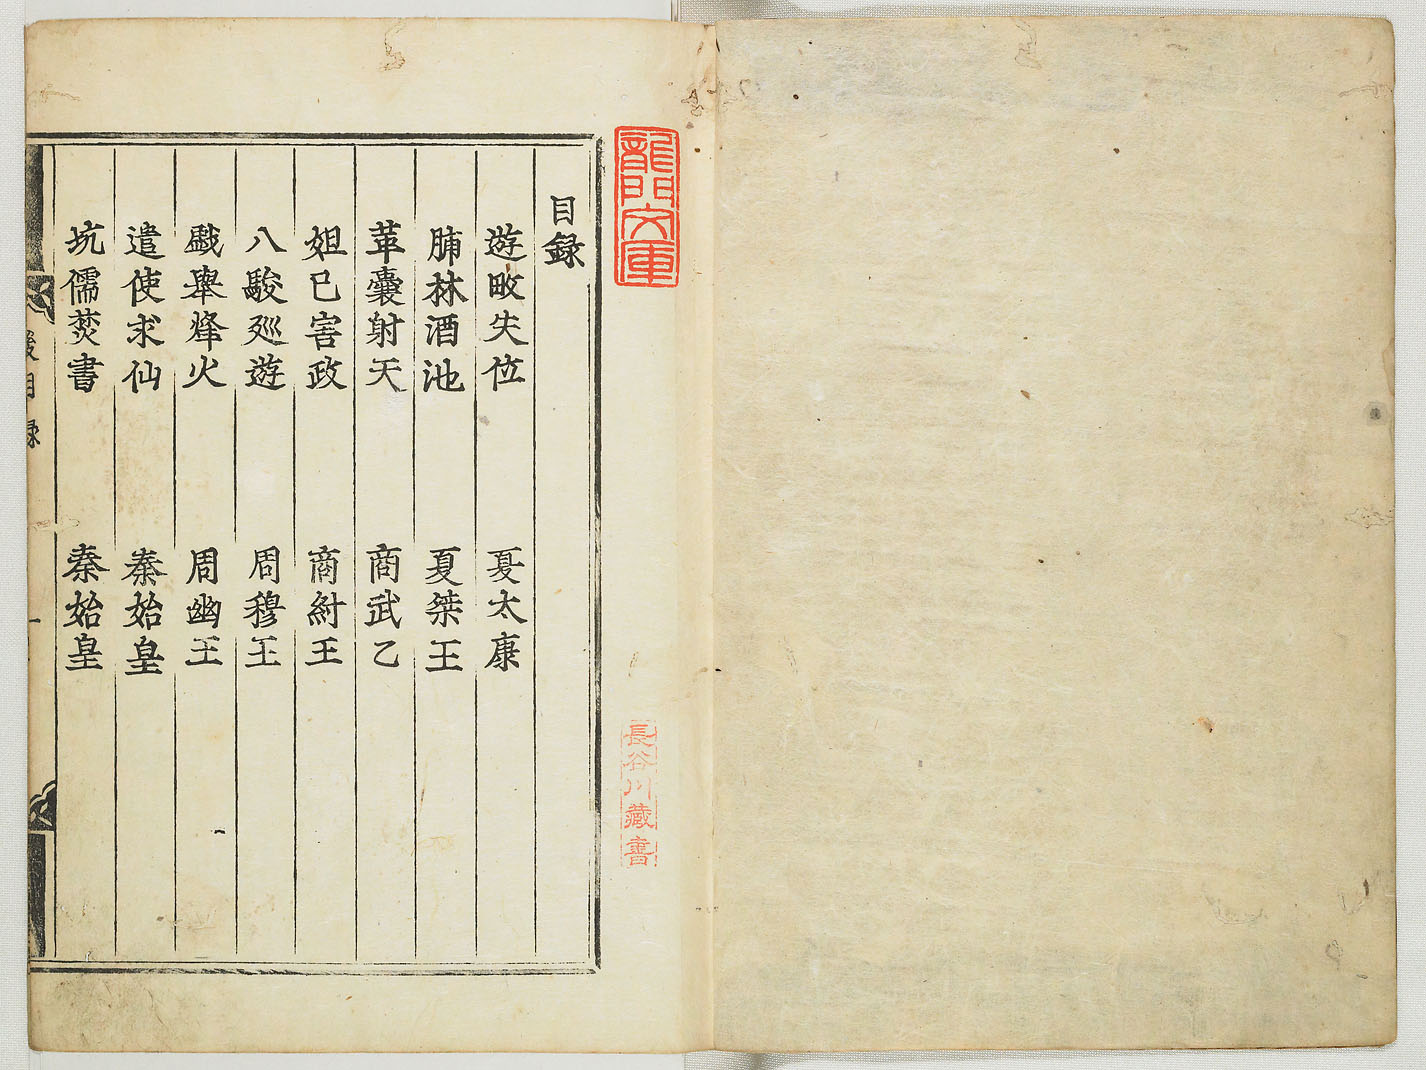 龍門文庫
長谷川藏書
目録
遊畋失位 夏太康
脯林酒池 夏桀王
革囊射天 商武乙
妲己害政 商紂王
八駿巡遊 周穆王
戯舉烽火 周幽王
遣使求仙 秦始皇
坑儒焚書 秦始皇
後目録
一